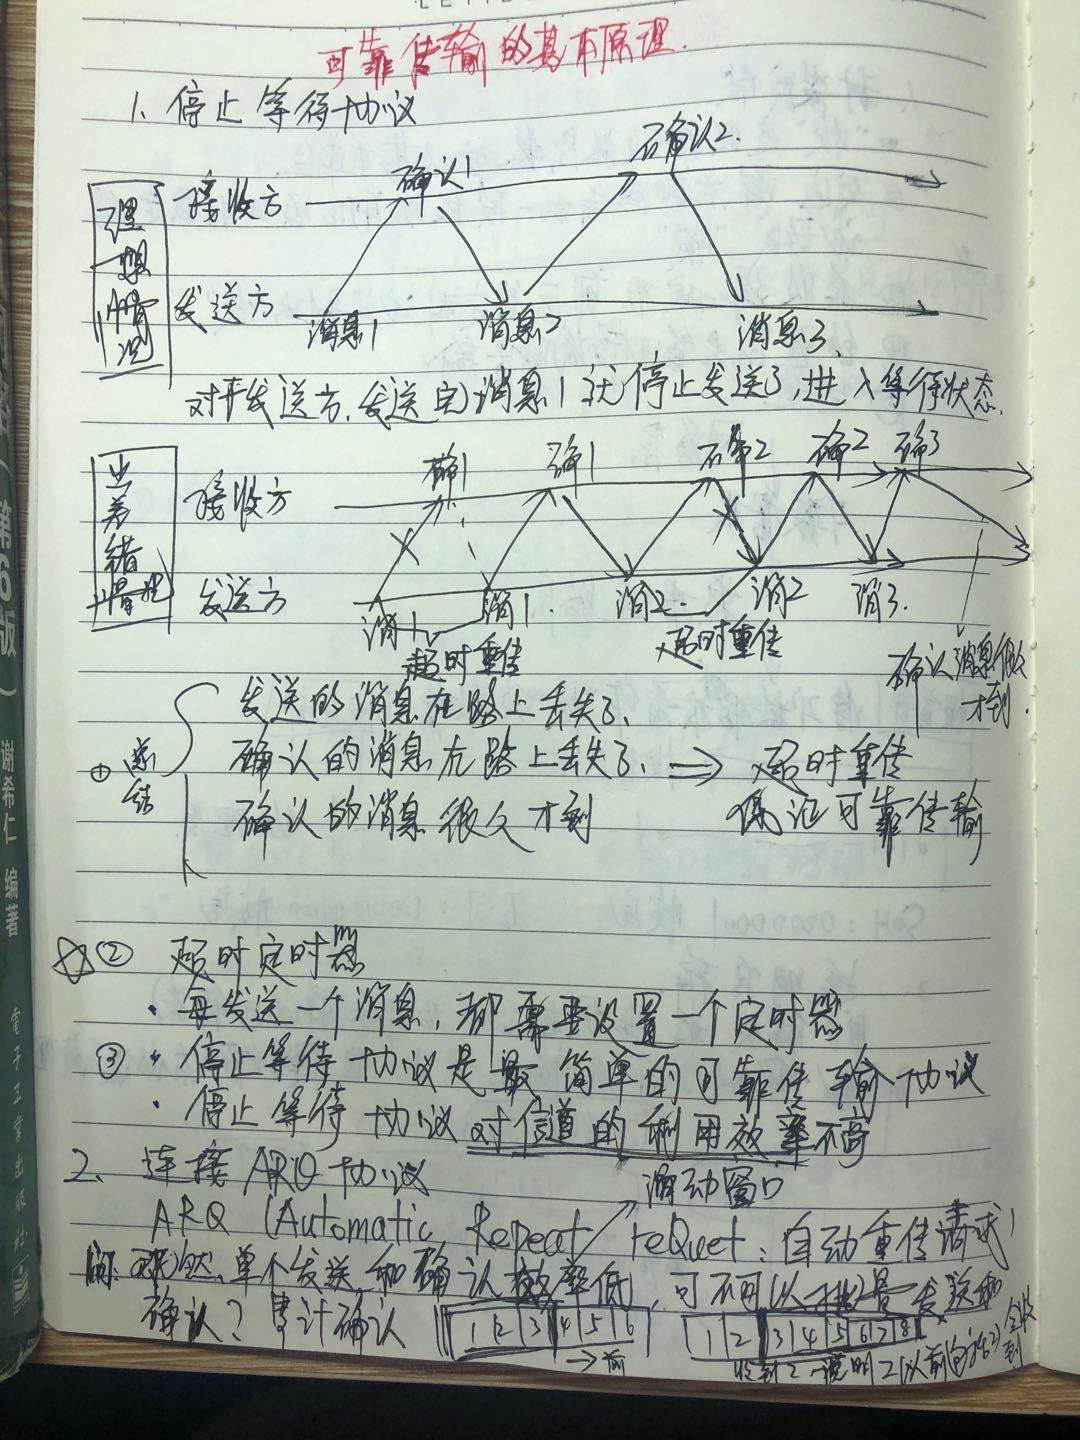 可靠传输的基本原理.
1. 停止等待协议
确认1 确认2.
理想情况
接收方
发送方
消息1 消息2 消息3.
对于发送方,发送完消息1就停止发送了,进入等待状态.
出差错情况
确1 确1 确2 确2 确3
接收方
发送方
消1 消1. 消2. 消2 消3.
超时重传 超时重传
确认消息很久才到.
① 总结
发送的消息在路上丢失了、
确认的消息在路上丢失了、 ⇒ 超时重传
确认的消息很久才到 保证可靠传输
☆② 超时定时器
· 每发送一个消息,都需要设置一个定时器
③ · 停止等待协议是最简单的可靠传输协议
· 停止等待协议对信道的利用效率不高
2. 连接ARQ协议 滑动窗口
ARQ (Automatic Repeat reQuet:自动重传请求)
问:既然单个发送和确认效率低,可不可以批量发送和
确认?累计确认
1 2 3 4 5 6
→前
1 2 3 4 5 6 7 8
收到2说明2以前(包括2)全收到
第6版)
谢希仁 编著
電子工業出版社